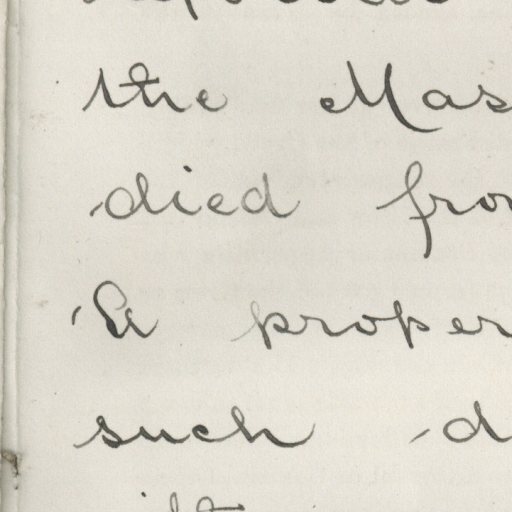 the Mas
died from
& proper
such d